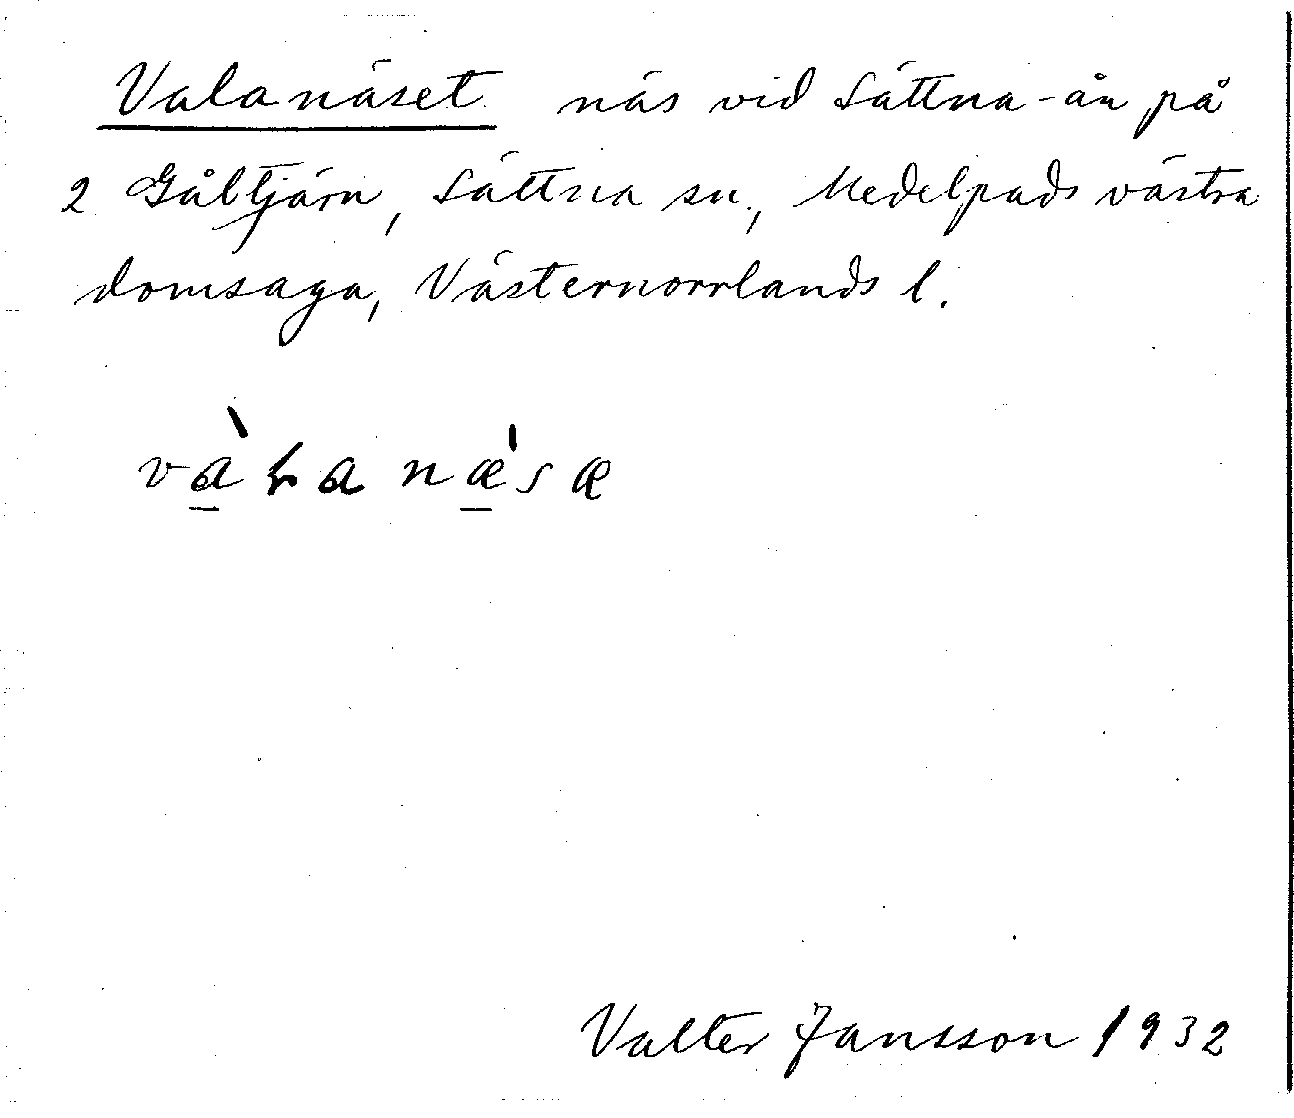 Valanäset näs vid Sättna-ån på
2 Gåltjärn, Sättna sn., Medelpads västra
domsaga, Västernorrlands l.
và̱ɽa næ̱'sæ
Valter Jansson 1932